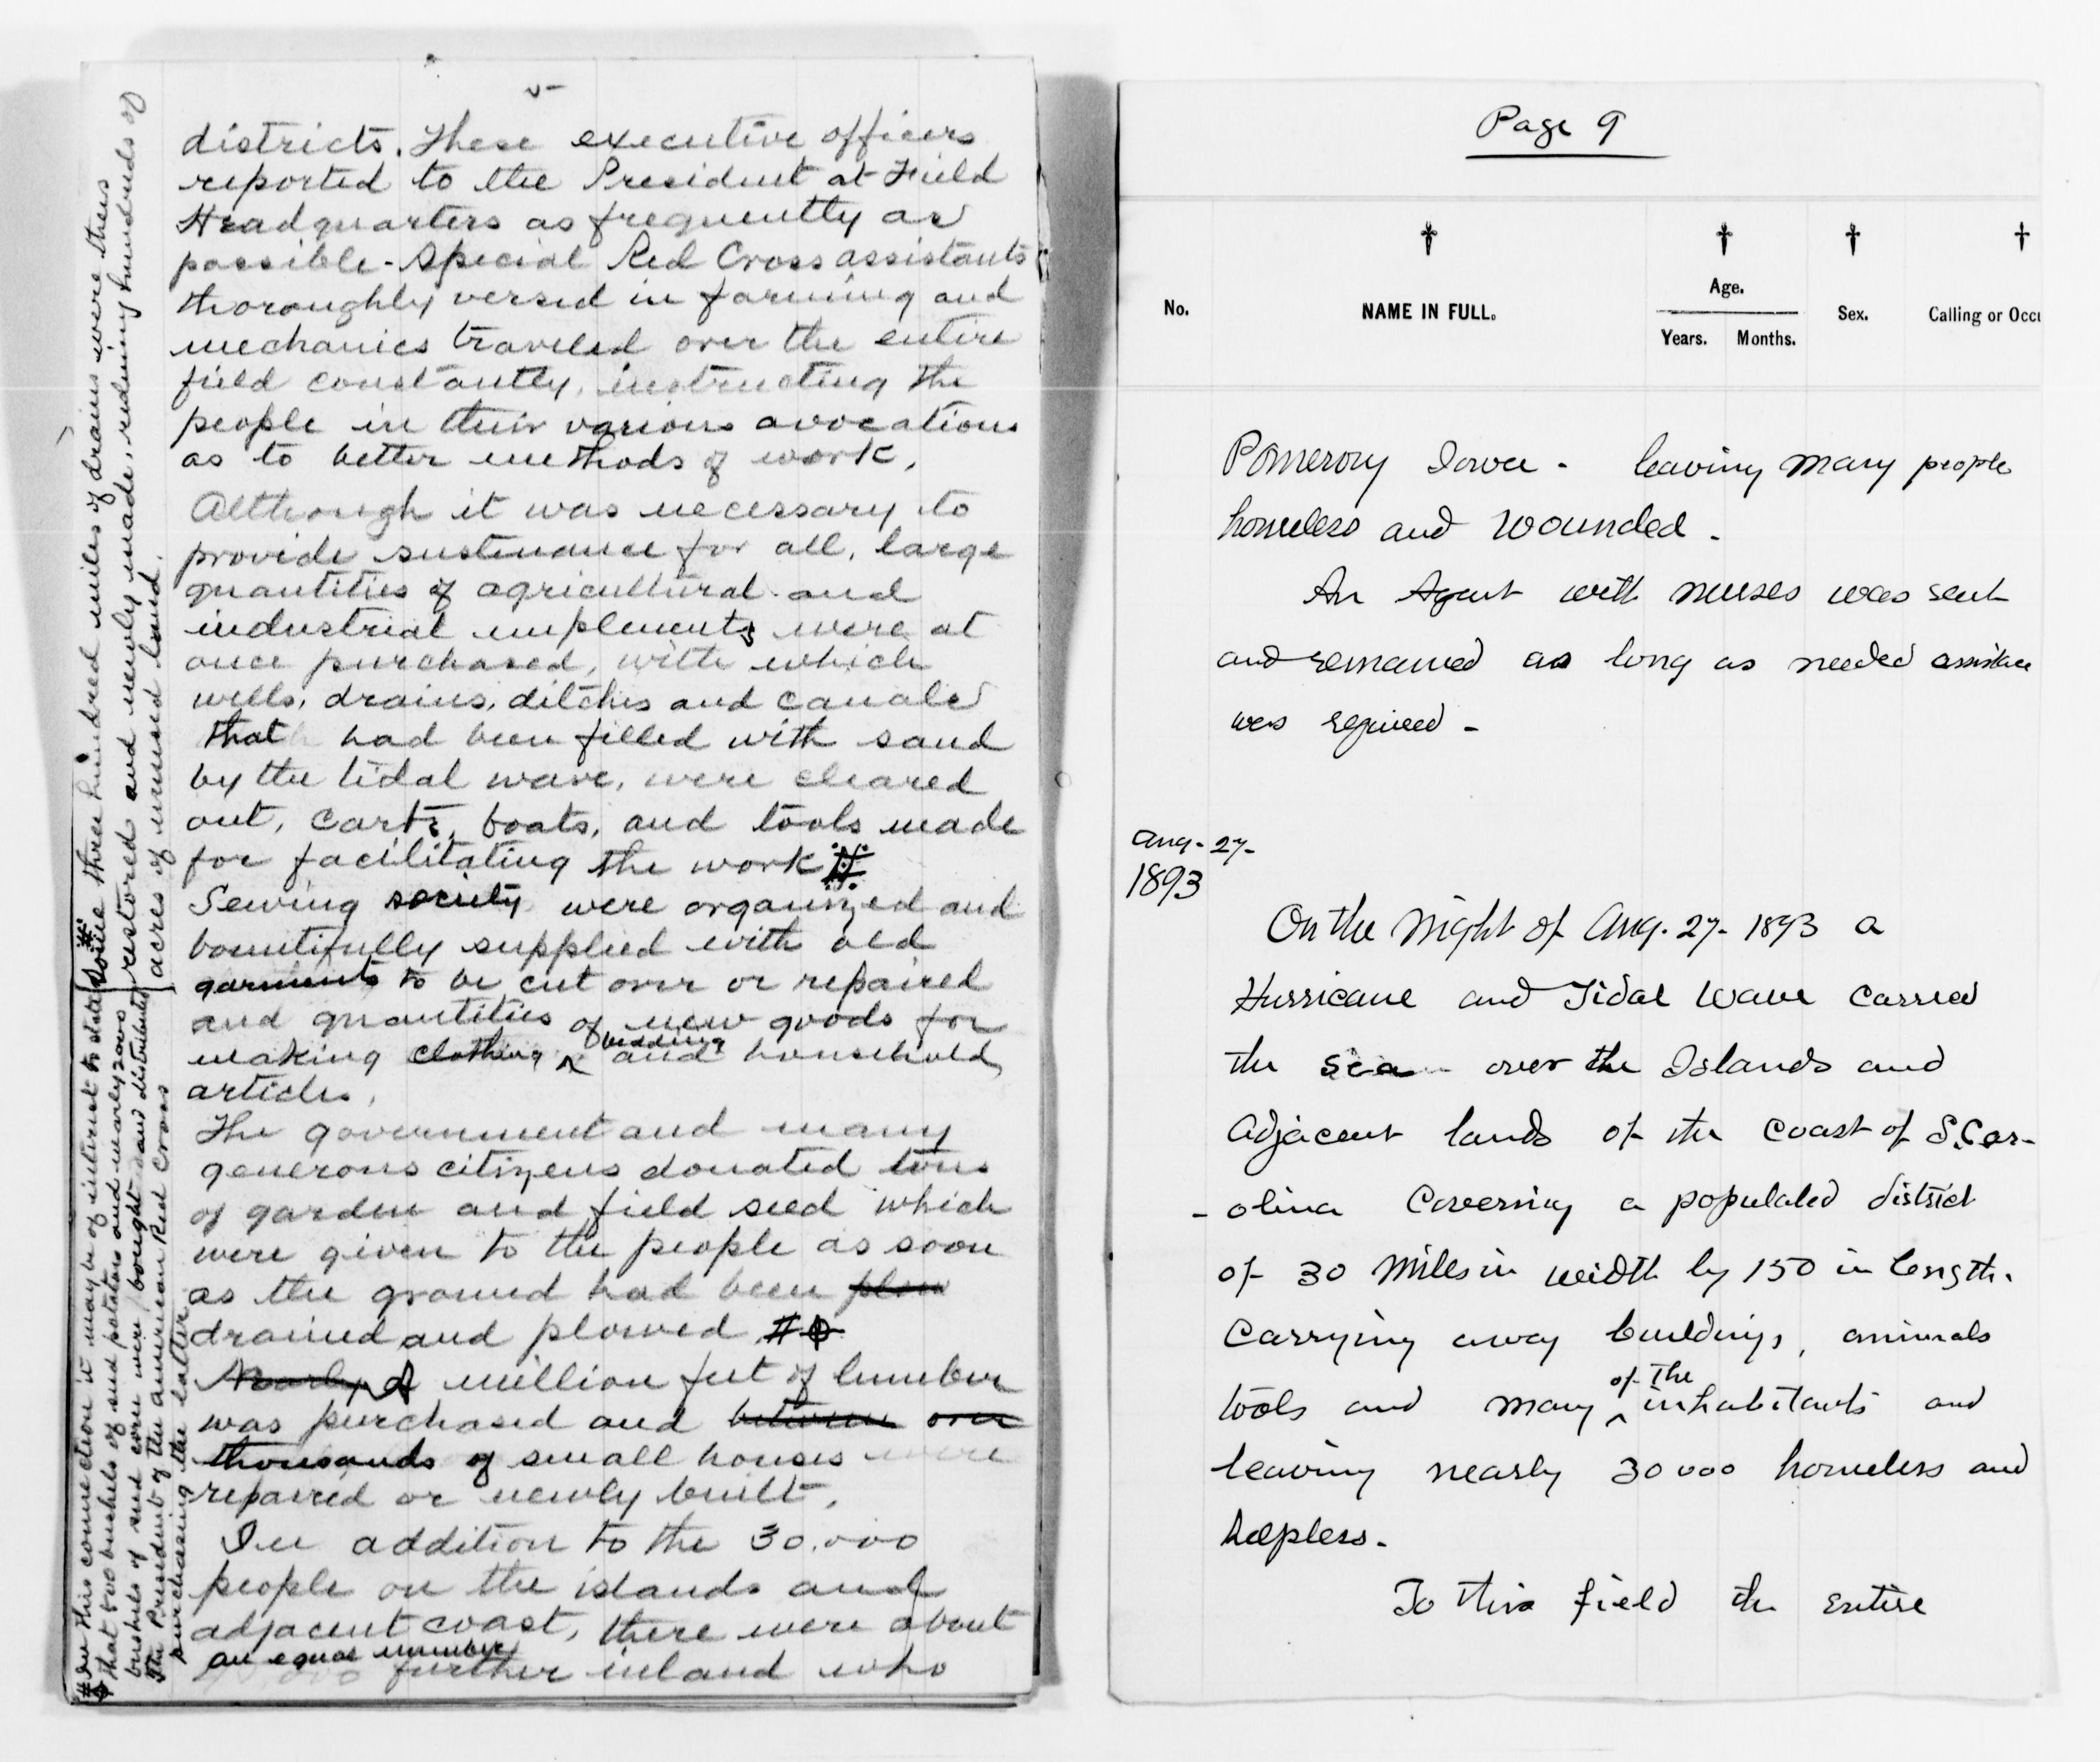 5
districts. These executive officers
reported to the President at Field
Headquarters as frequently as
possible - Special Red Cross assistants
thoroughly versed in farming and
mechanics traveled over the entire
field constantly, instructing the
people in their various avocations
as to better methods of work.
Although it was necessary to
provide sustenance for all, large
quantities of agricultural and
industrial implements were at
once purchased, with which
wells, drains, ditches and canals
that had been filled with sand
by the tidal wave, were cleared
out, carts, boats, and tools made
for facilitating the work #
Sewing society were organized and
bountifully supplied with old
garments to be cut over or repaired
and quantities of new goods for
making clothing ^ bedding and household
articles.
The government and many
generous citizens donated tons
of garden and field seed which
were given to the people as soon
as the ground had been plow
drained and plowed #
Nearly A million feet of lumber
was purchased and between over
thousands of small houses were
repaired or newly built.
In addition to the 30.000
people on the islands and
adjacent coast, there were about
an equal number
further inland who
# Some three hundred miles of drains were thus
restored and newly made, redeeming hundreds of
acres of unused land.
# In this connection it may be of interest to state
that 500 bushels of seed potatoes and nearly 2000
bushels of seed corn were bought and distributed
The President of the American Red Cross
purchasing the latter
Page 9
No.
NAME IN FULL.
Age.
Years. Months.
Sex.
Calling or Occu
Pomerory Iowa - leaving many people
homeless and wounded -
An Agent with nurses was sent
and remained as long as needed assistance
was required -
Aug - 27 -
1893
On the Night of Aug. 27 - 1893 a
Hurricane and Tidal Wave carried
the sea over the Islands and
adjacent lands of the coast of S. Car-
- olina Covering a populated district
of 30 Miles in width by 150 in length.
Carrying away buildings, animals
tools and many ^ of the inhabitants and
leaving nearly 30000 homeless and
helpless -
To this field the entire